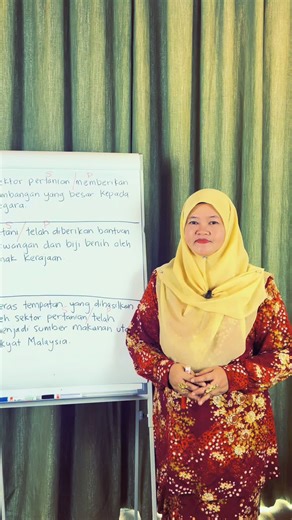 ektor pertanian memberikan
mbangan yang besar kepada
egara.
S P
tani telah diberikan bantuan
wangan dan biji benih oleh
hak Kerajaan
eras tempatan yang dihasilkan
eh sektor pertanian telah
enjadi sumber makanan uta
akyat Malaysia.